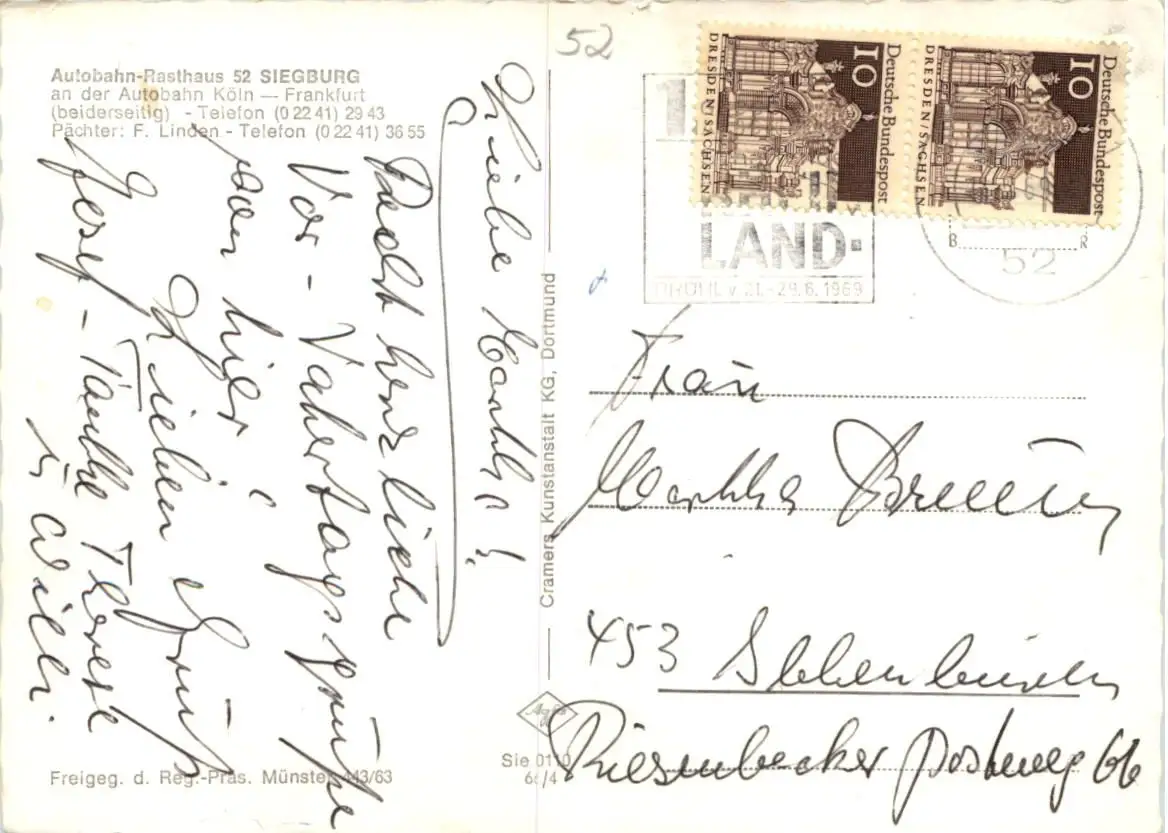 Autobahn-Rasthaus 52 SIEGBURG
an der Autobahn Köln — Frankfurt
(beiderseitig) - Telefon (0 22 41) 29 43
Pächter: F. Linden - Telefon (0 22 41) 36 55
Liebe Martha!
Recht herzliche
Vor - Vatertagsgrüße
von hier
Lieben Gruß
Josef - Tante Therese
u Willi.
Freigeg. d. Reg.-Präs. Münster 443/63
Cramers Kunstanstalt KG, Dortmund
Agfa
Sie 0110
66/4
52
Deutsche Bundespost
10
DRESDEN/SACHSEN
Deutsche Bundespost
10
DRESDEN/SACHSEN
LAND-
v. 21.-29.6.1969
B R
52
Frau
Martha
453
Riesenbecker Postweg 66